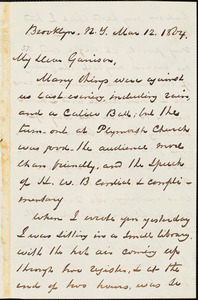 Brooklyn. N.Y. Mar 12. 1864.
My dear Garrison,
Many things were against
us last evening, including rain,
and a Calico Ball; but the
turn-out at Plymouth Church
was good, the audience more
than friendly, and the speech
of H. W. B cordial & compli-
mentary
When I wrote you yesterday
I was sitting in a small library,
with the hot air coming up
through two registers, & at the
end of two hours, was so